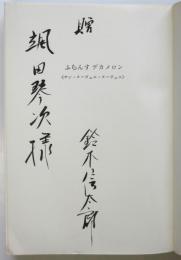 贈
颯田琴次様
ふらんすデカメロン
(サン・ヌーヴェル・ヌーヴェル)
鈴木信太郎